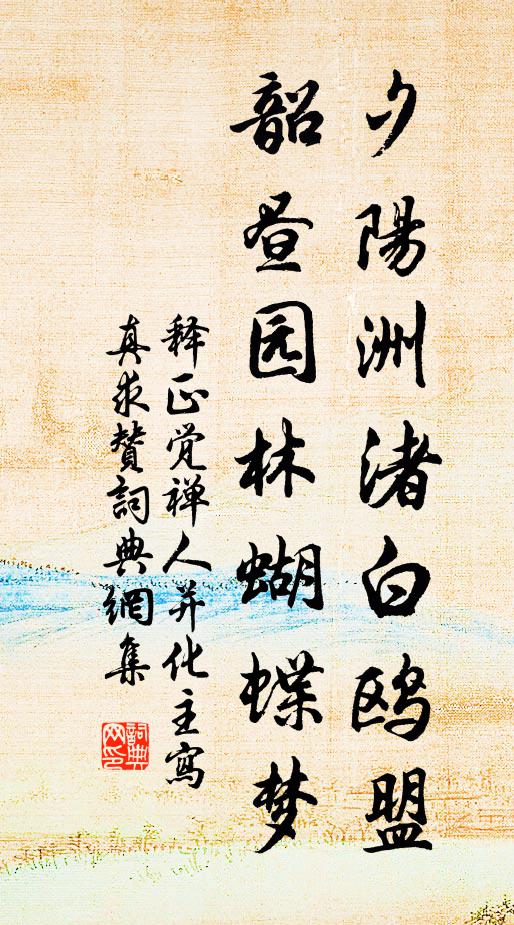 夕陽洲渚白鸥盟
韶昼园林蝴蝶梦
释正觉禅人并化主寫
真求赞詞典網集
詞典网印